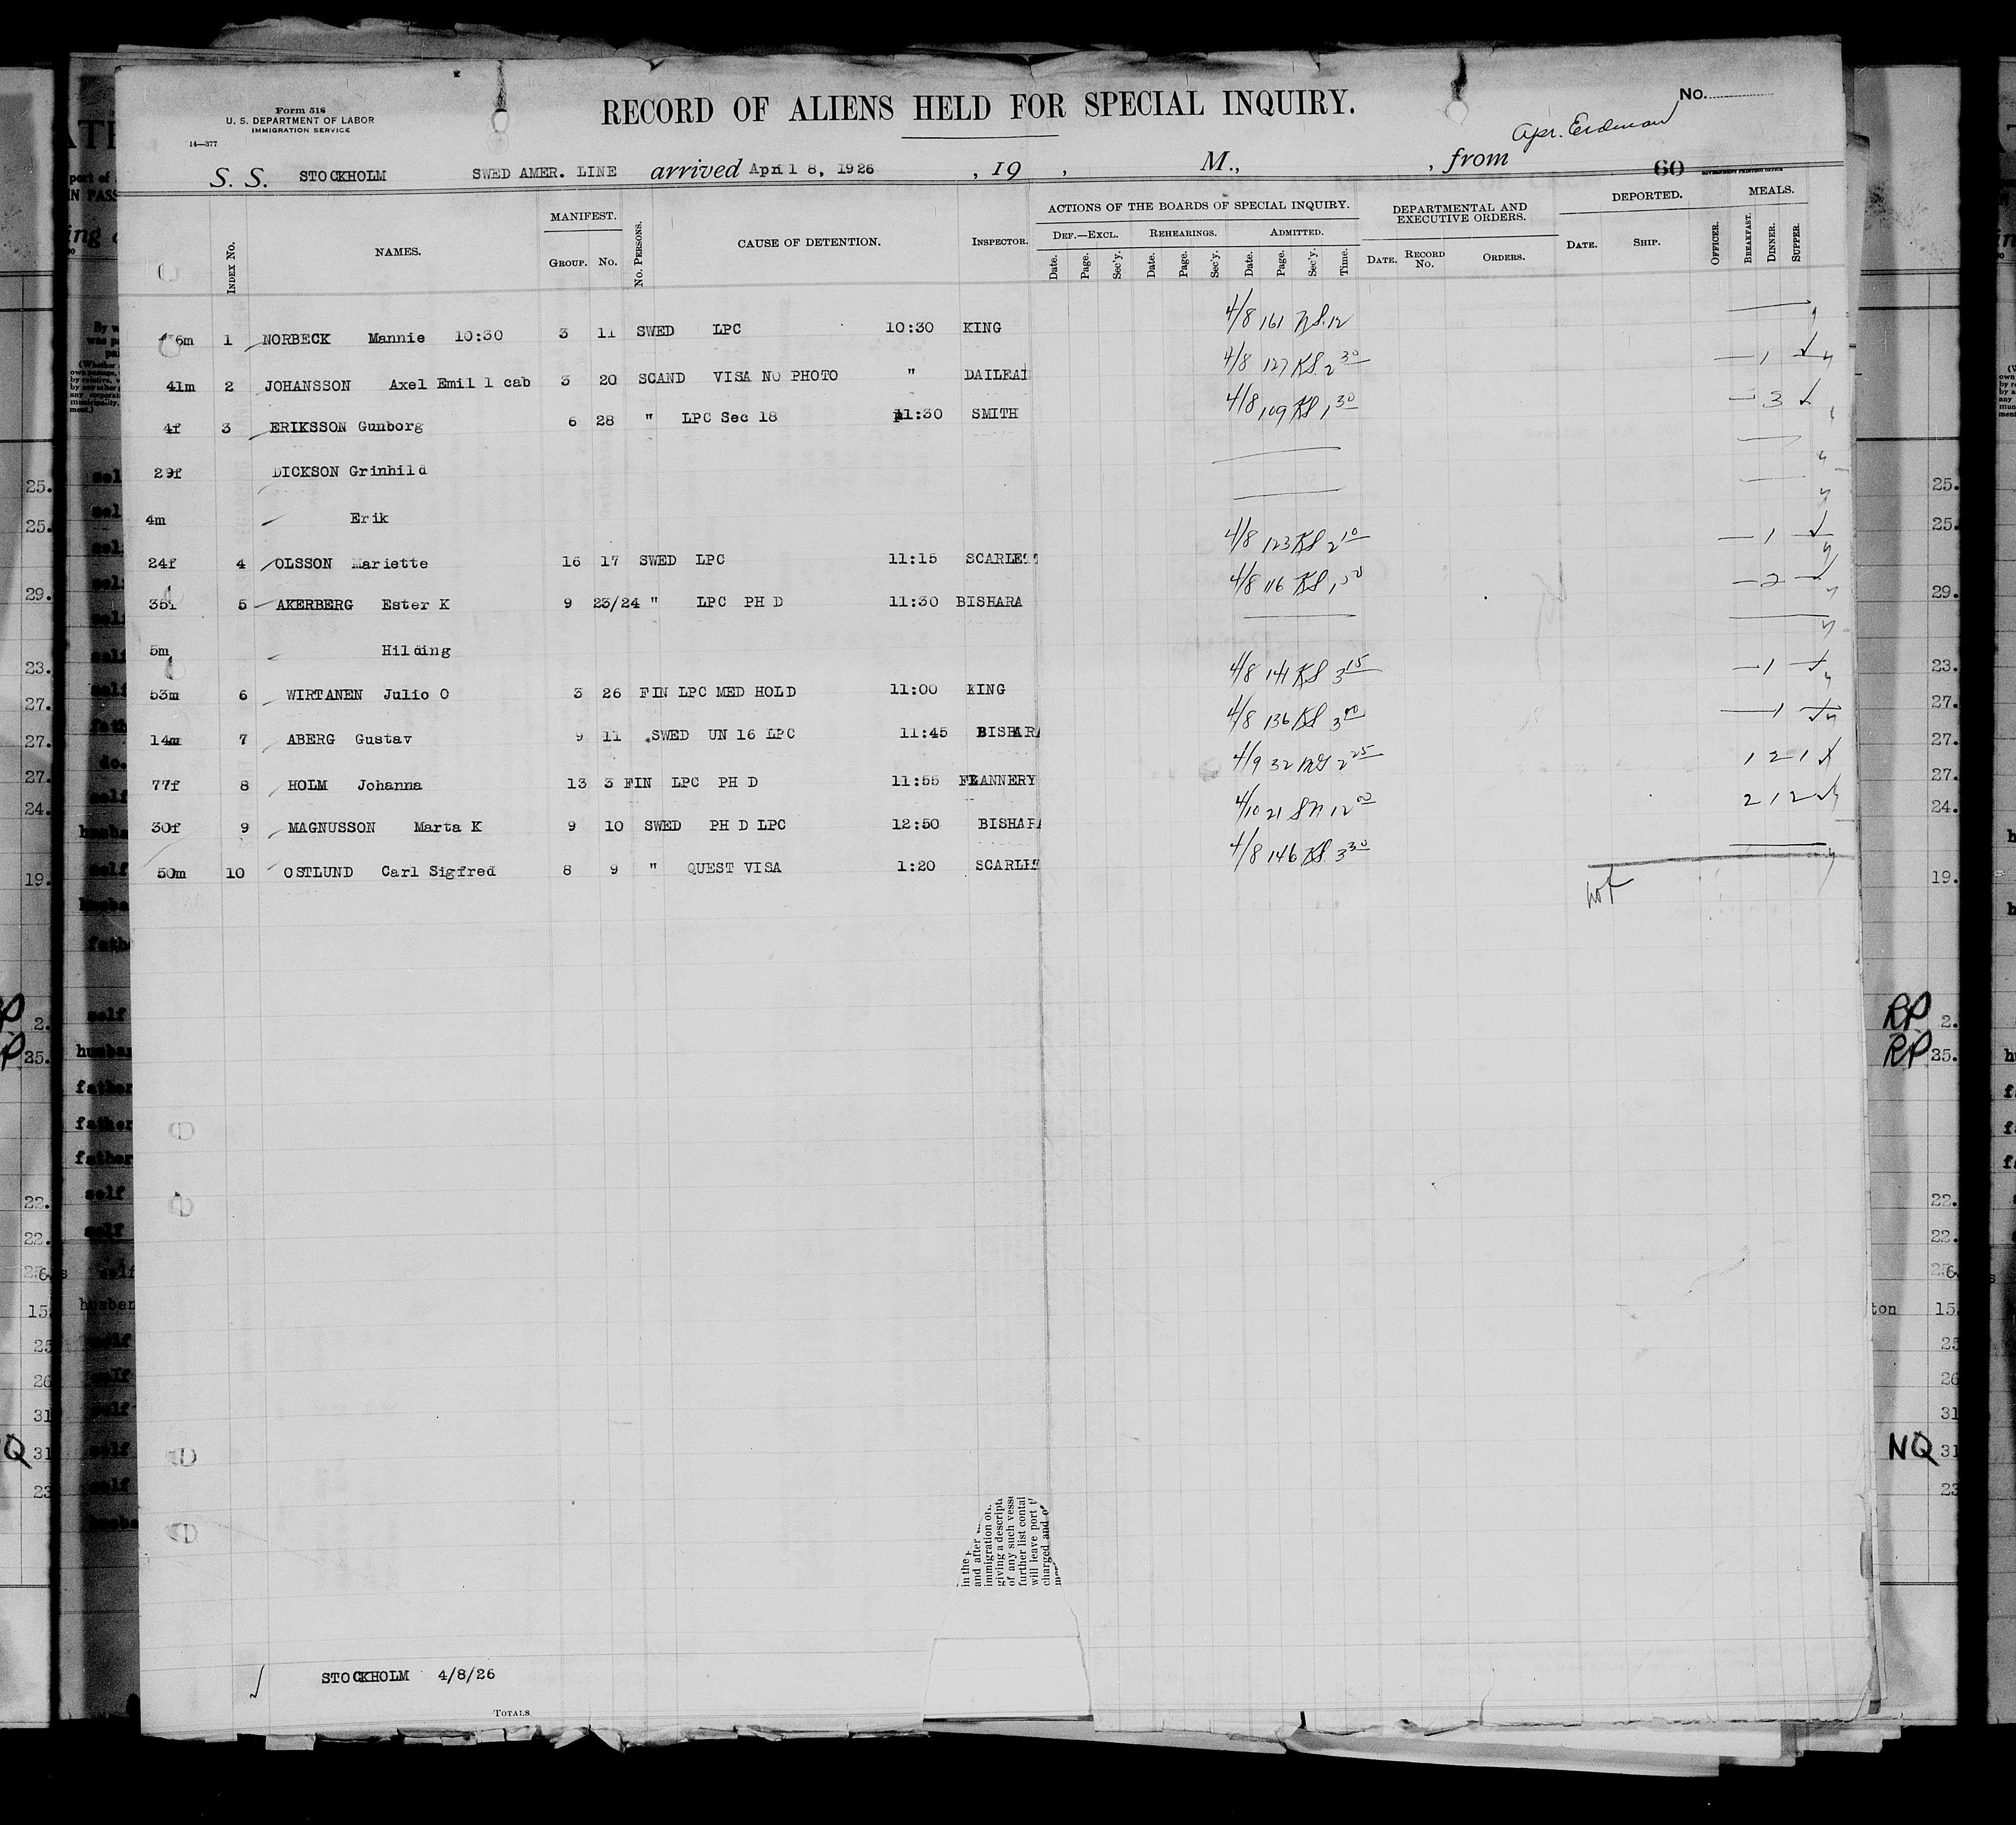 Form 518
U. S. DEPARTMENT OF LABOR
IMMIGRATION SERVICE
14—377
RECORD OF ALIENS HELD FOR SPECIAL INQUIRY.
No.
Apr. Erdman
S. S. STOCKHOLM SWED AMER. LINE arrived April 8, 1926 , 19 , M., , from 60
GOVERNMENT PRINTING OFFICE
INDEX No. NAMES. MANIFEST. GROUP. No. No. PERSONS. CAUSE OF DETENTION. INSPECTOR. ACTIONS OF THE BOARDS OF SPECIAL INQUIRY. DEF.—EXCL. Date. Page. Sec'y. REHEARINGS. Date. Page. Sec'y. ADMITTED. Date. Page. Sec'y. Time. DEPARTMENTAL AND EXECUTIVE ORDERS. DATE. RECORD No. ORDERS. DEPORTED. DATE. SHIP. OFFICER. MEALS. BREAKFAST. DINNER. SUPPER.
6m 1 NORBECK Mannie 10:30 3 11 SWED LPC 10:30 KING 4/8 161 12
41m 2 JOHANSSON Axel Emil 1 cab 3 20 SCAND VISA NO PHOTO " DAILEA 4/8 127 KS 2 30 — 1 ✓
4f 3 ERIKSSON Gunborg 6 28 " LPC Sec 18 11:30 SMITH 4/8 109 KS 1 30 — 3 ✓
29f DICKSON Grinhild
4m Erik
24f 4 OLSSON Mariette 16 17 SWED LPC 11:15 SCARLETT 4/8 123 KS 2 10 — 1 ✓
35f 5 AKERBERG Ester K 9 23/24 " LPC PH D 11:30 BISHARA 4/8 116 KS — 2 ✓
5m Hilding
53m 6 WIRTANEN Julio O 3 26 FIN LPC MED HOLD 11:00 KING 4/8 141 KS 3 15 — 1
14m 7 ABERG Gustav 9 11 SWED UN 16 LPC 11:45 BISHARA 4/8 136 KS 3 00 — 1
77f 8 HOLM Johanna 13 3 FIN LPC PH D 11:55 FLANNERY 4/9 32 2 25 1 2 1
30f 9 MAGNUSSON Marta K 9 10 SWED PH D LPC 12:50 BISHARA 4/10 21 SN 12 00 2 1 2
50m 10 OSTLUND Carl Sigfred 8 9 " QUEST VISA 1:20 SCARLET 4/8 146 KS 3 30
RP
RP
NQ
in the
and after
immigration
giving a descript
of any such vess
further list contai
will leave port t
charged and
STOCKHOLM 4/8/26
TOTALS